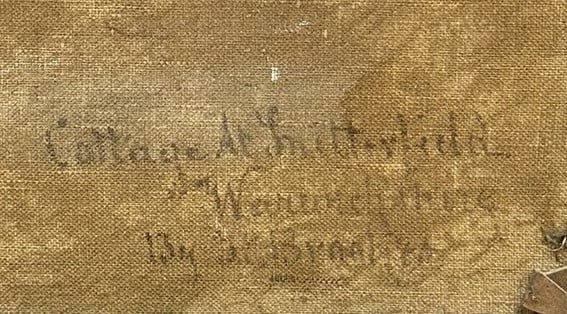 Cottage At Snitterfield
Warwickshire
By